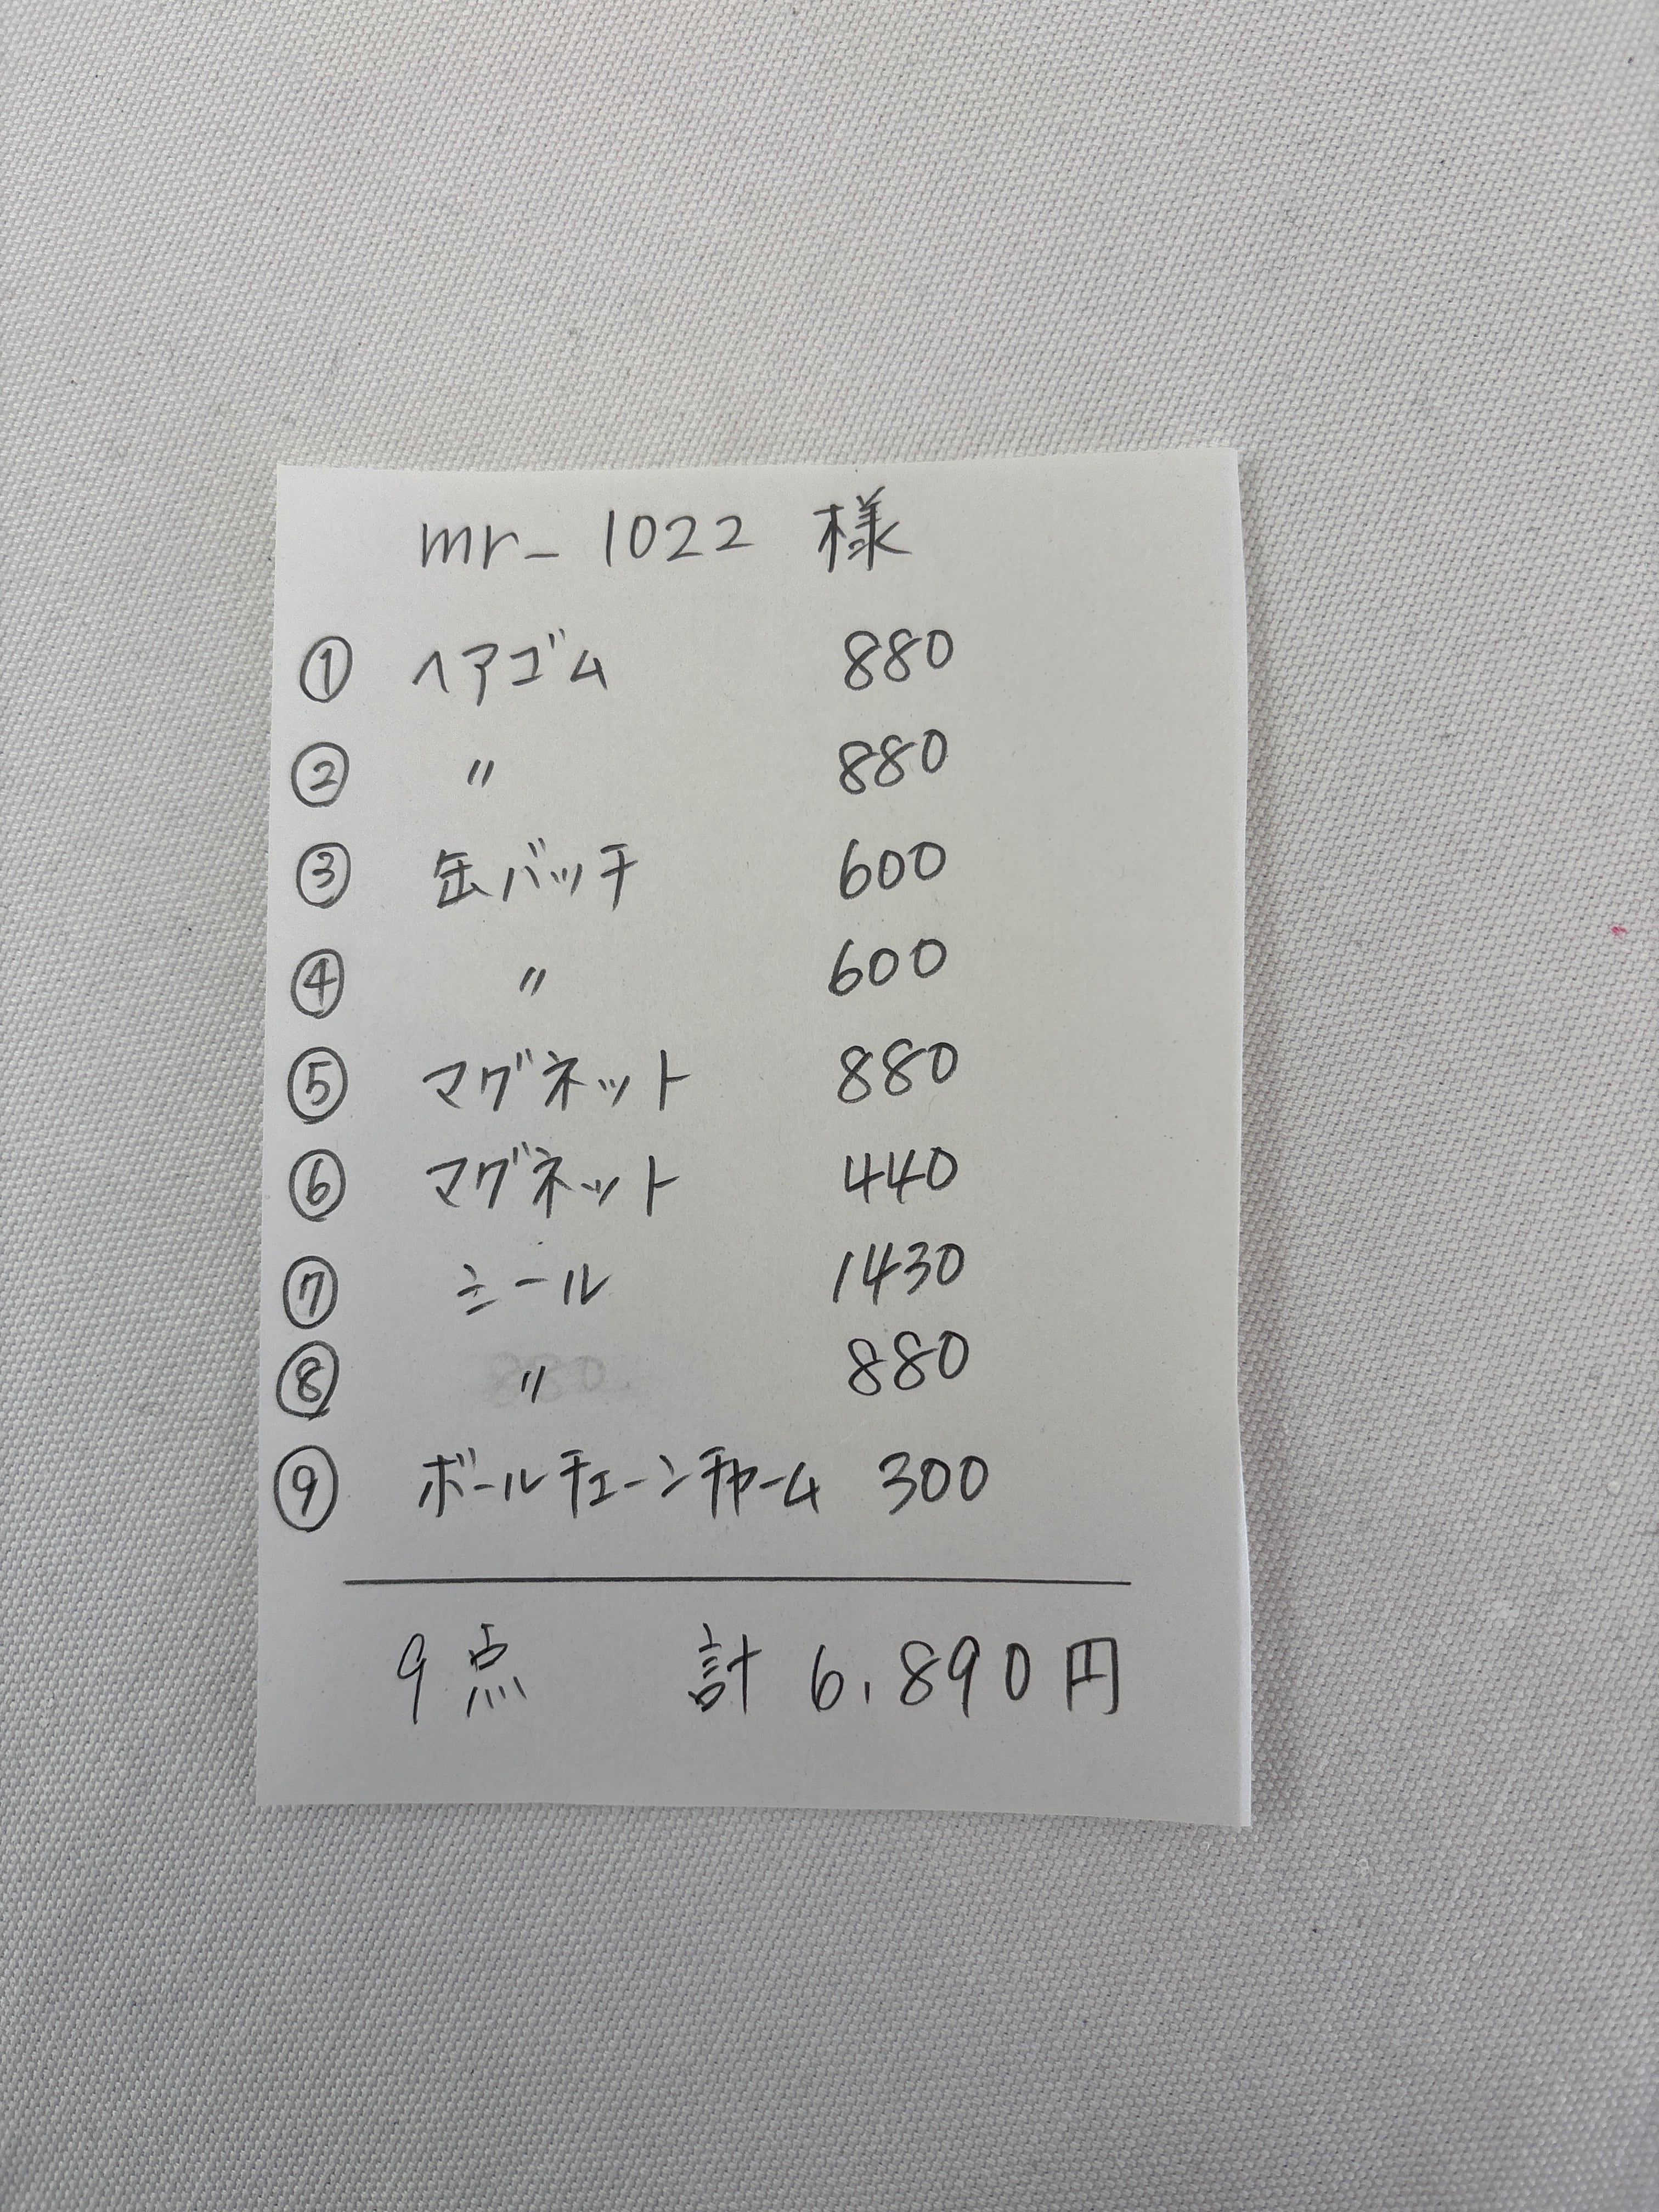 mr_1022 様
① ヘアゴム 880
② 〃 880
③ 缶バッチ 600
④ 〃 600
⑤ マグネット 880
⑥ マグネット 440
⑦ シール 1430
⑧ 〃 880
⑨ ボールチェーンチャーム 300
9点 計 6,890円